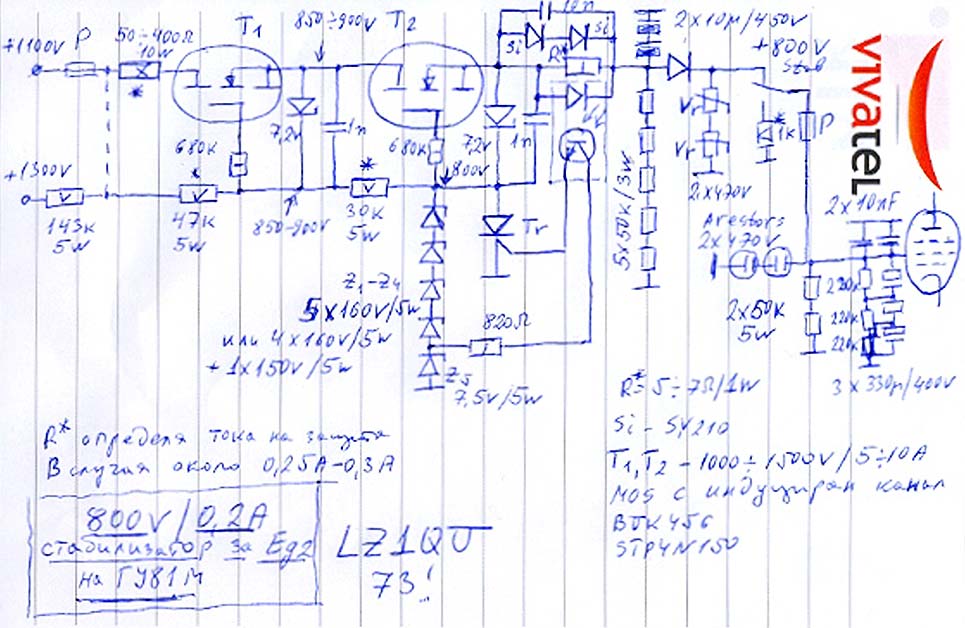 +1100V
P
50-400Ω
10W
*
T1
850-900V
T2
10n
Si
Si
R*
2x10µ/450V
+800V
Stab
VIVATEL
7,2V
1n
680K
680K
7,2V
800V
1n
*
1K
P
Vr
Vr
2x470V
+1300V
143K
5W
*
47K
5W
850-900V
*
30K
5W
Tr
5x50K/3W
Arestors
2x470V
2x10nF
Z1-Z4
5x160V/5W
или 4x160V/5W
+1x150V/5W
820Ω
Z5
7,5V/5W
2x50K
5W
220K
220K
220K
3x330µ/400V
R* определя тока на защита
В случая около 0,25A-0,3A
R*=5÷7Ω/1W
Si - SY210
T1,T2 - 1000÷1500V/5÷10A
MOS с индуциран канал
BUK456
STP4N150
800V/0,2A
стабилизатор за Eg2
на ГУ81М
LZ1QU
73!